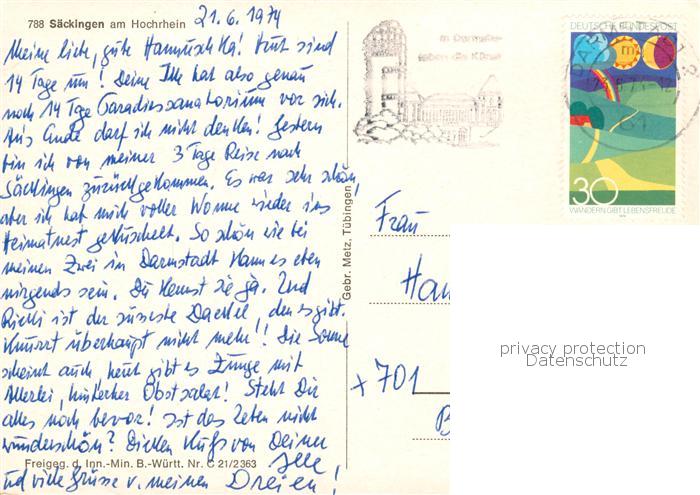 788 Säckingen am Hochrhein
21.6.1974
Meine liebe, gute Hannuschka! Heut sind
14 Tage um! Deine Ille hat also genau
noch 14 Tge Paradiessanatorium vor sich.
Ans Ende darf ich nicht denken! Gestern
bin ich von meiner 3 Tage Reise nach
Säckingen zurückgekommen. Es war sehr schön,
aber ich hab mich voller Wonne wieder ins
Heimatnest gekuschelt. So schön wie bei
meinen Zwei in Darmstadt kann es eben
nirgends sein. Du kennst sie ja. Und
Rickli ist der süsseste Dackel, den es gibt.
Knurrt überhaupt nicht mehr!! Die Sonne
scheint auch, heut gibt es Zunge mit
Allerlei, hinterher Obstsalat! Steht Dir
alles noch bevor! Ist das Leben nicht
wunderschön? Dicken Kuß von Deiner
Ille
und viele Grüsse v. meinen Dreien!
Freigeg. d. Inn.-Min. B.-Württ. Nr. C 21/2363
Gebr. Metz, Tübingen
in Darmstadt
leben die Künste
DEUTSCHE BUNDESPOST
30
WANDERN GIBT LEBENSFREUDE
Frau
Han
x 701
B
privacy protection
Datenschutz